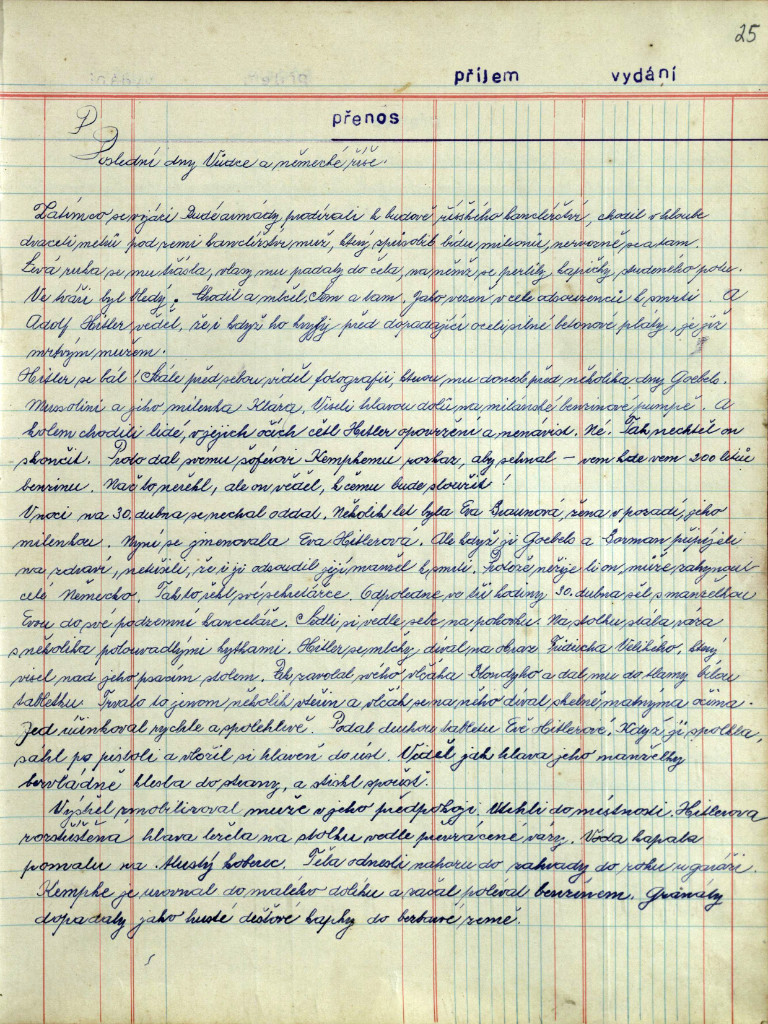 25
příjem vydání
přenos
P
Poslední dny Vůdce a německé říše.
Zatímco se vojáci Rudé armády prodírali k budově říšského kancléřství, chodil v hloubce
dvaceti metrů pod zemí kancléřství muž, který způsobil bídu milionů, nervozně sem a tam.
Levá ruka se mu třásla, vlasy mu padaly do čela, na němž se perlily kapičky studeného potu.
Ve tváři byl bledý. Chodil a mlčel, sem a tam. Jako vězeň v cele odsouzenců k smrti. A
Adolf Hitler věděl, že i když ho kryjí před dopadající ocelí silné betonové pláty, je již
mrtvým mužem.
Hitler se bál! Stále před sebou viděl fotografii, kterou mu donesl před několika dny Goebels.
Mussolini a jeho milenka Klára. Viseli hlavou dolů na milánské benzinové pumpě. A
kolem chodili lidé, v jejich očích četl Hitler opovržení a nenávist. Né. Tak nechtěl on
skončit. Proto dal svému šoférovi Kemphemu rozkaz, aby sehnal – vem kde vem 200 litrů
benzinu. Nač to, neřekl, ale on věděl, k čemu bude sloužit!
V noci na 30. dubna se nechal oddat. Několik let byla Eva Braunová, žena v pozadí, jeho
milenkou. Nyní se jmenovala Eva Hitlerová. Ale když jí Goebels a Borman připíjeli
na zdraví, netušili, že i ji odsoudil její manžel k smrti. Protože nežije li on, může zahynout
celé Německo. Tak to řekl své sekretářce. Odpoledne ve tři hodiny 30. dubna šel s manželkou
Evou do své podzemní kanceláře. Sedli si vedle sebe na pohovku. Na stolku stála váza
s několika polouvadlými kytkami. Hitler se mlčky díval na obraz Fridricha Velikého, který
visel nad jeho psacím stolem. Pak zavolal svého vlčáka Blondyho a dal mu do tlamy bílou
tabletku. Trvalo to jenom několik vteřin a vlčák se na něho díval skelně matnýma očima.
Jed účinkoval rychle a spolehlivě. Podal druhou tabletu Evě Hitlerové. Když ji spolkla,
sáhl po pistoli a vložil si hlaveň do úst. Viděl jak hlava jeho manželky
bezvládně klesla do strany, a stiskl spoušť.
Výstřel zmobilizoval muže v jeho předpokoji. Utekli do místnosti. Hitlerova
roztříštěná hlava ležela na stolku vedle převrácené vázy. Voda kapala
pomalu na tlustý koberec. Těla odnesli nahoru do zahrady do rohu u garáží.
Kemphe je urovnal do malého dolíku a začal polévat benzinem. Granáty
dopadaly jako husté dešťové kapky do bezbarvé země.